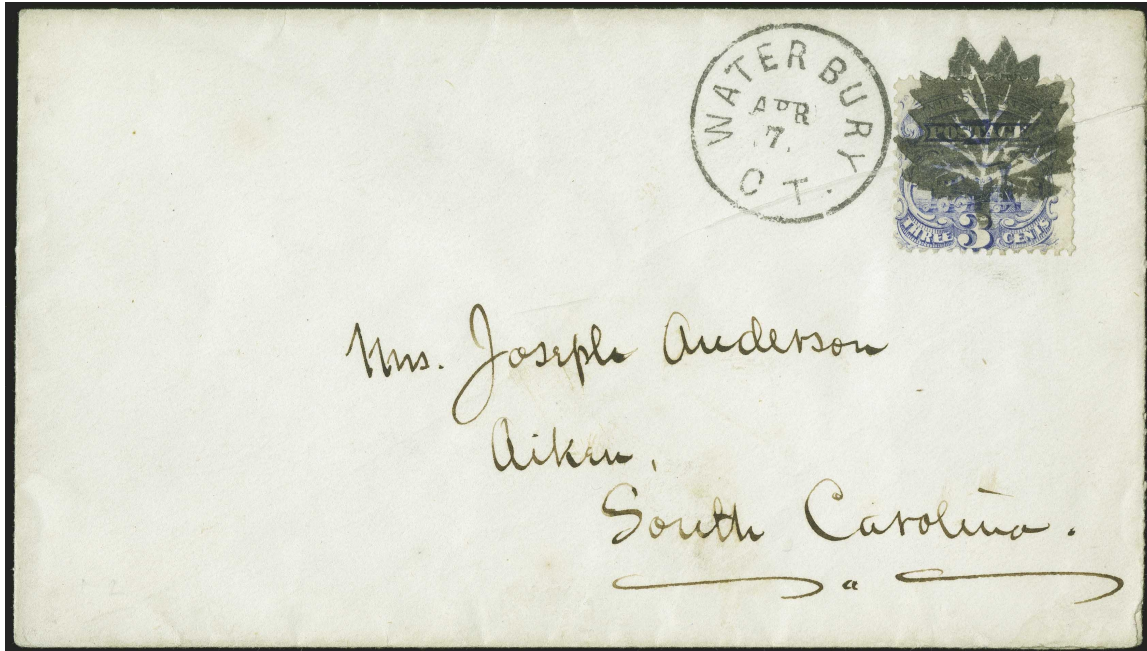 WATERBURY
APR
7.
CT.
POSTAGE
THREE 3 CENTS
Mrs. Joseph Anderson
Aiken,
South Carolina.